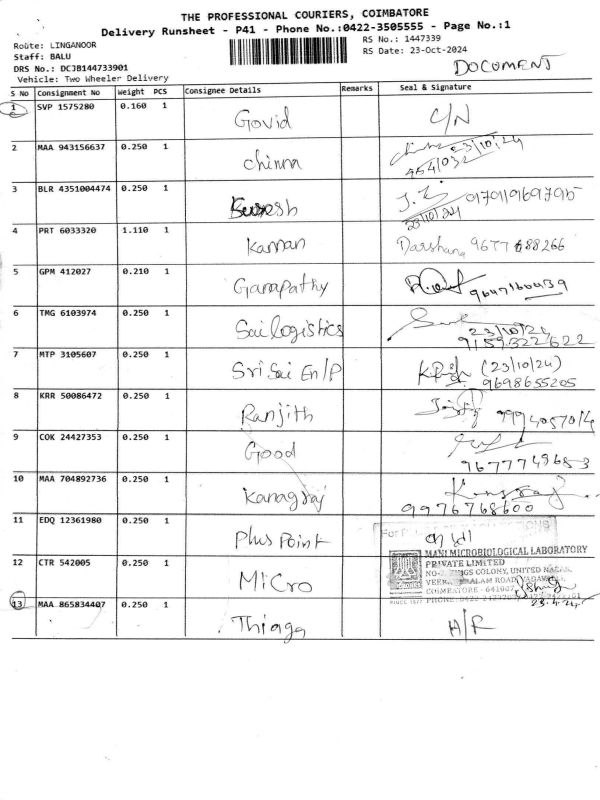 THE PROFESSIONAL COURIERS, COIMBATORE
Delivery Runsheet - P41 - Phone No.:0422-3505555 - Page No.:1
Route: LINGANOOR
RS No.: 1447339
Staff: BALU
RS Date: 23-Oct-2024
DRS No.: DCJB144733901
DOCUMENT
Vehicle: Two Wheeler Delivery
S No Consignment No Weight PCS Consignee Details Remarks Seal & Signature
1 SVP 1575280 0.160 1 Govid C/N
2 MAA 943156637 0.250 1 chinna 23/10/24
3 BLR 4351004474 0.250 1 Suresh
23/10/24
4 PRT 6033320 1.110 1 Kannan Darshana 9677688266
5 GPM 412027 0.210 1 Ganapathy 9047160439
6 TMG 6103974 0.250 1 Sai logistics
23/10/24
9159322622
7 MTP 3105607 0.250 1 Sri Sai En/P (23/10/24)
9698655205
8 KRR 50086472 0.250 1 Ranjith
9 COK 24427353 0.250 1 Good
9677748683
10 MAA 704892736 0.250 1 Kanagraj
9976768600
11 EDQ 12361980 0.250 1 Plus Point
For
MANI MICROBIOLOGICAL LABORATORY
12 CTR 542005 0.250 1 Micro PRIVATE LIMITED
COLONY, UNITED NAGAR,
ROAD,
COIMBATORE - 641007
SINCE 1977 PHONE:
13 MAA 865834407 0.250 1 Thiaga A/R